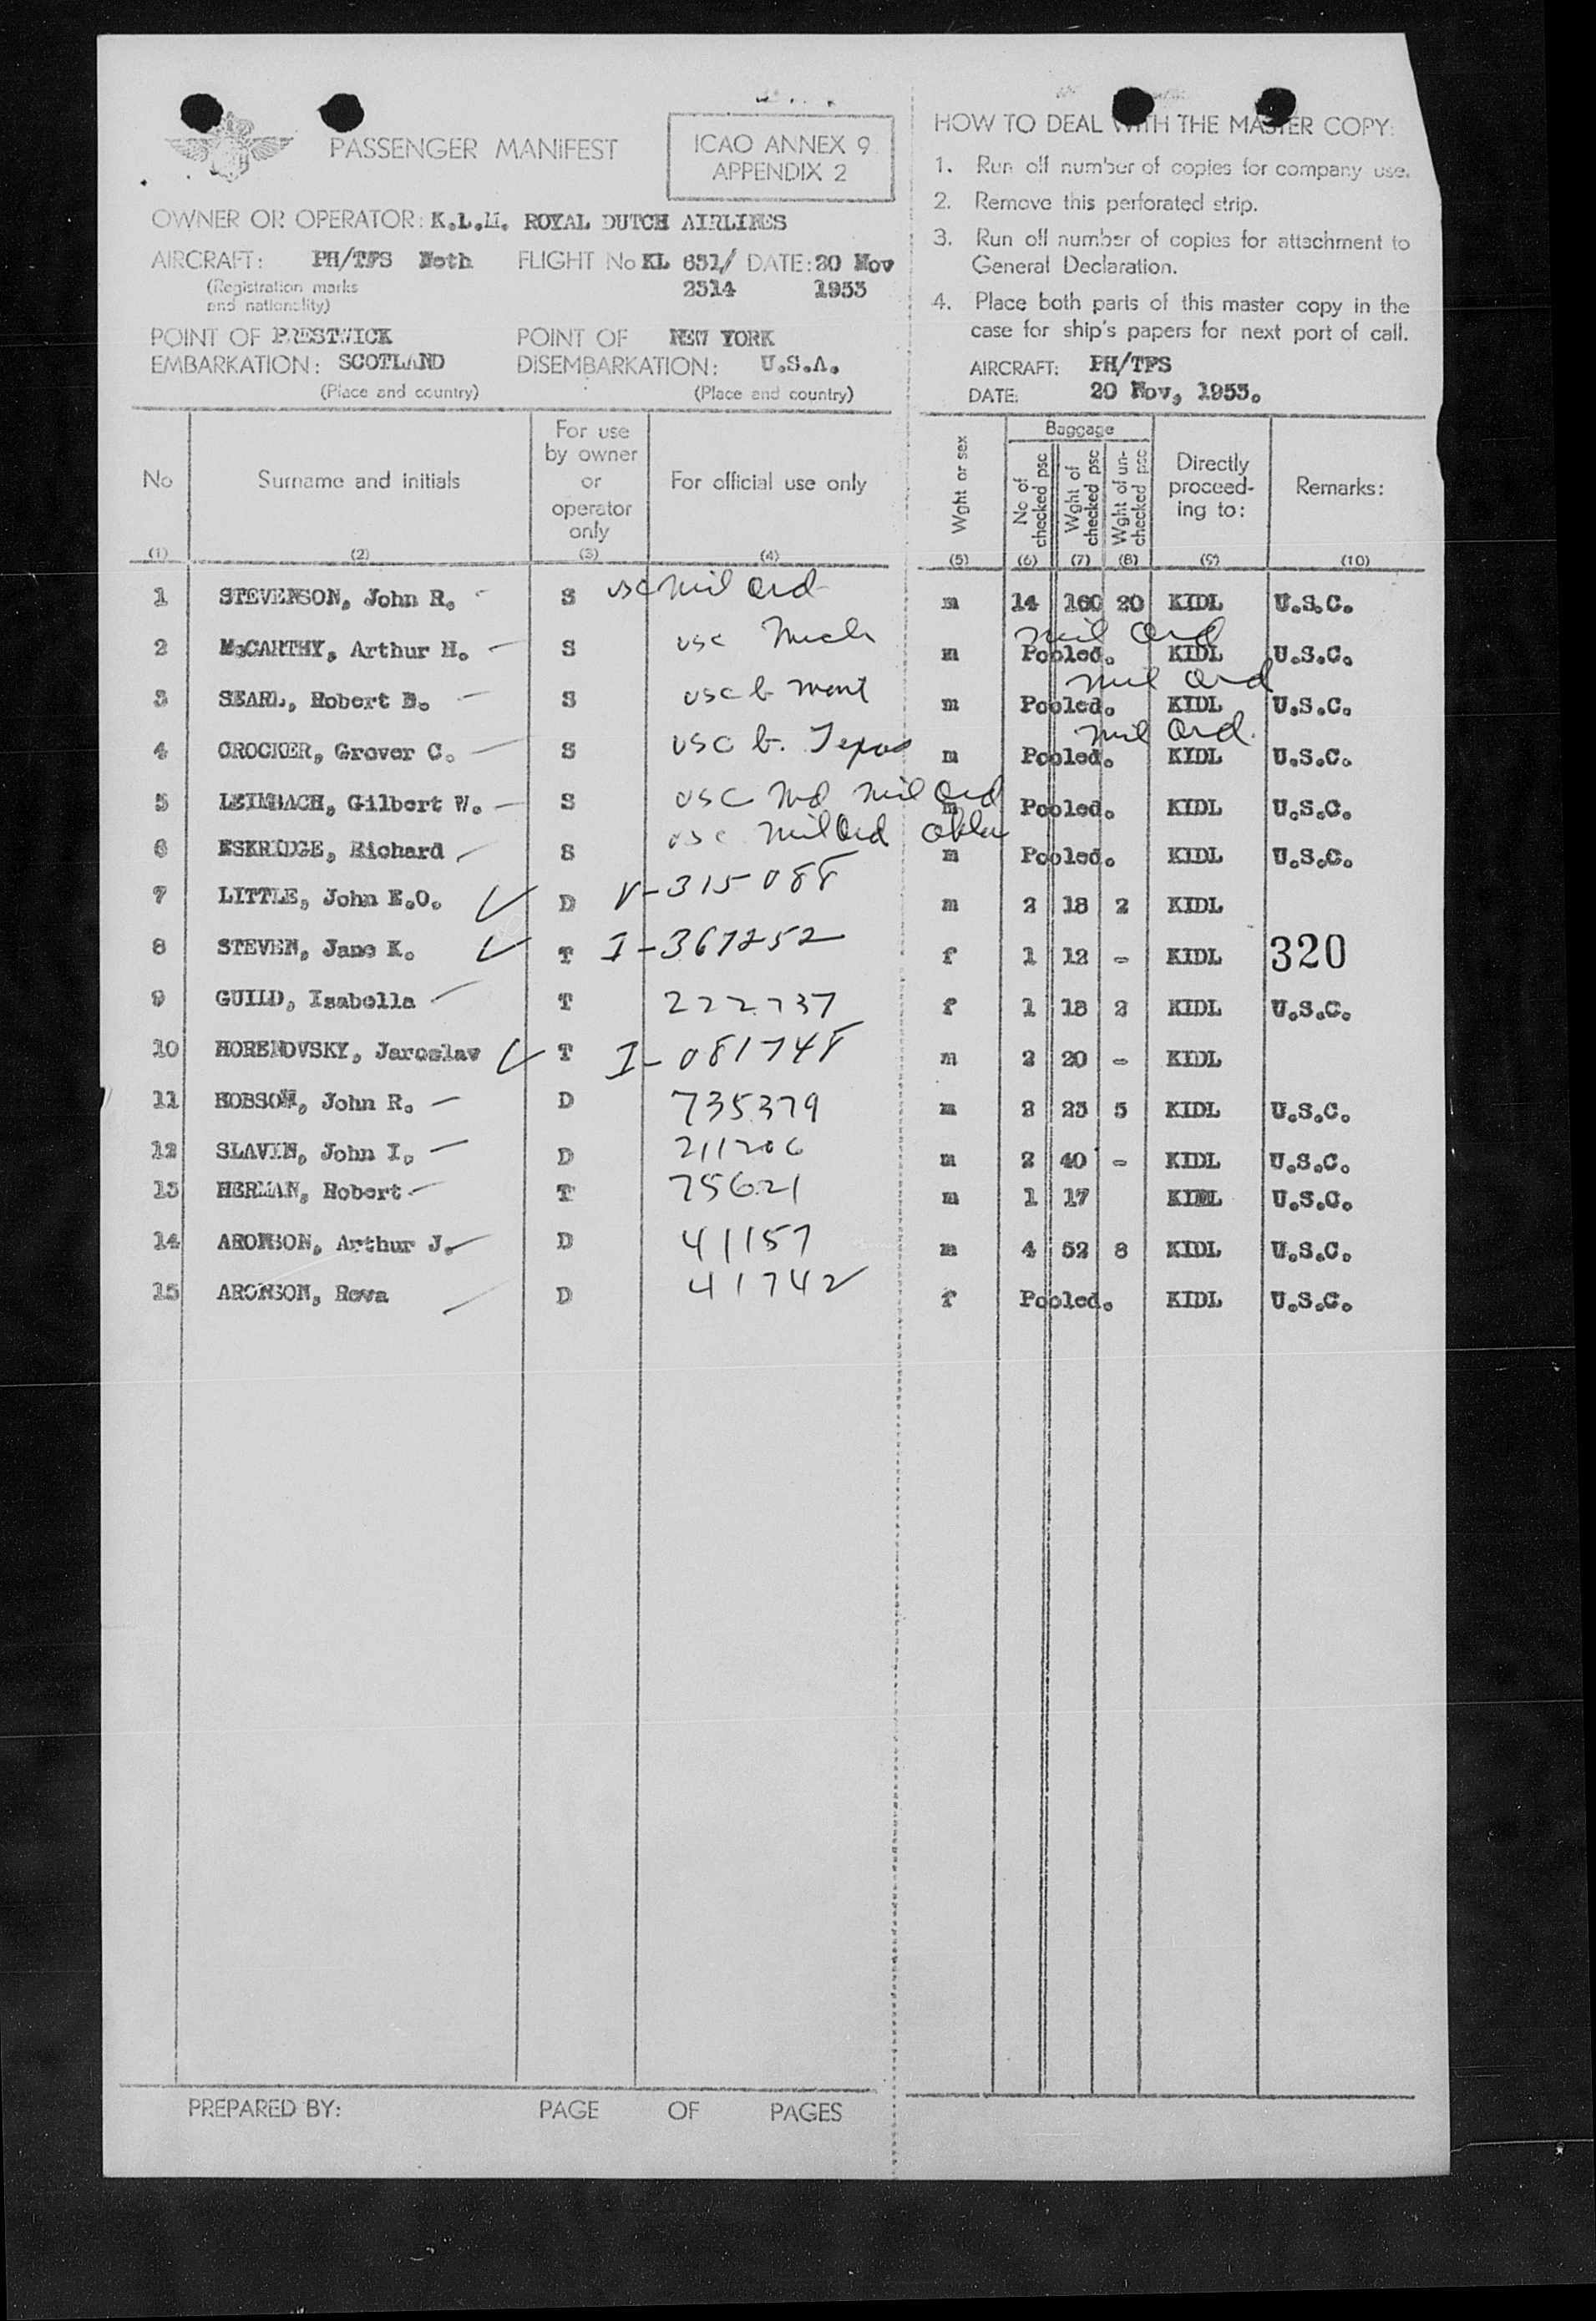 PASSENGER MANIFEST
ICAO ANNEX 9
APPENDIX 2
OWNER OR OPERATOR: K.L.M. ROYAL DUTCH AIRLINES
AIRCRAFT: PH/TFS Neth FLIGHT No KL 651/ DATE: 20 Nov
(Registration marks 2314 1953
and nationality)
POINT OF PRESTWICK POINT OF NEW YORK
EMBARKATION: SCOTLAND DISEMBARKATION: U.S.A.
(Place and country) (Place and country)
HOW TO DEAL WITH THE MASTER COPY:
1. Run off number of copies for company use.
2. Remove this perforated strip.
3. Run off number of copies for attachment to
General Declaration.
4. Place both parts of this master copy in the
case for ship's papers for next port of call.
AIRCRAFT: PH/TFS
DATE: 20 Nov, 1953.
No Surname and initials For use by owner or operator only For official use only Wght or sex Baggage No of checked psc Wght of checked psc Wght of un-checked psc Directly proceed-ing to: Remarks:
(1) (2) (3) (4) (5) (6) (7) (8) (9) (10)
1 STEVENSON, John R. S usc mil ord m 14 160 20 KIDL U.S.C.
2 McCARTHY, Arthur H. S usc Mich mil ord m Pooled. KIDL U.S.C.
3 SEARL, Robert D. S usc b mont mil ord m Pooled. KIDL U.S.C.
4 CROCKER, Grover C. S usc b. Texas mil ord. m Pooled. KIDL U.S.C.
5 LEIMBACH, Gilbert W. S usc Md mil ord m Pooled. KIDL U.S.C.
6 ESKRIDGE, Richard S usc mil ord Okla m Pooled. KIDL U.S.C.
7 LITTLE, John E.O. D V-315088 m 2 18 2 KIDL
8 STEVEN, Jane K. T I-367252 f 1 12 - KIDL 320
9 GUILD, Isabella T 222737 f 1 18 2 KIDL U.S.C.
10 HORENOVSKY, Jaroslav T I-081748 m 2 20 - KIDL
11 HOBSON, John R. D 735379 m 2 23 5 KIDL U.S.C.
12 SLAVIN, John I. D 211206 m 2 40 - KIDL U.S.C.
13 HERMAN, Robert T 75621 m 1 17 KIDL U.S.C.
14 ARONSON, Arthur J. D 41157 m 4 52 8 KIDL U.S.C.
15 ARONSON, Reva D 41742 f Pooled. KIDL U.S.C.
PREPARED BY: PAGE OF PAGES